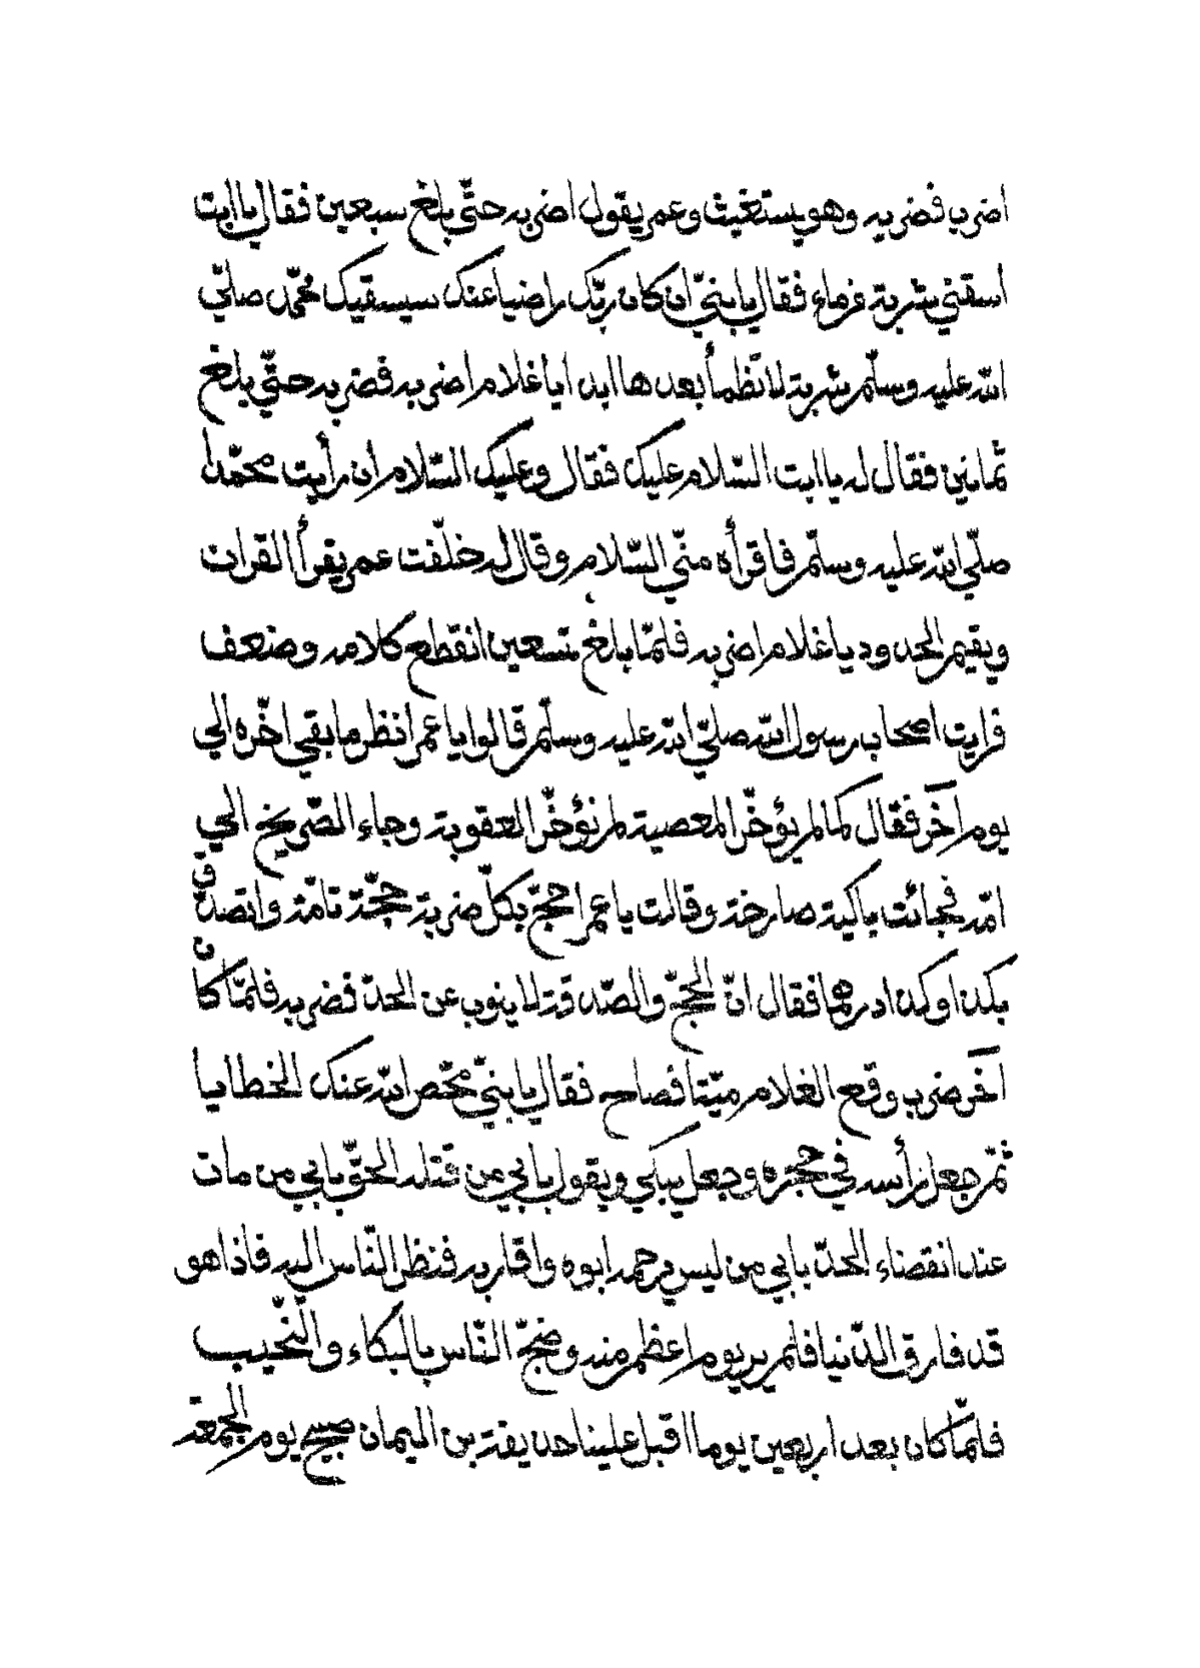 اضرب فضربه وهو يستغيث وعمر يقول اضربه حتّى بلغ سبعين فقال يا ابت
اسقني شربة من ماء فقال يا بنيّ ان كان ربّك راضيا عنك سيسقيك محمّد صلّي
الله عليه وسلّم شربة لا تظمأ بعدها ابدا يا غلام اضربه فضربه حتّي بلغ
ثمانين فقال له يا ابت السّلام عليك فقال وعليك السّلام ان رأيت محمّدا
صلّي الله عليه وسلّم فاقرأه منّي السّلام وقال له خلّفت عمر يقرأ القران
ويقيم الحدود يا غلام اضربه فلمّا بلغ تسعين انقطع كلامه وضعف
فرايت اصحاب رسول الله صلّي الله عليه وسلّم قالوا يا عمر انظر ما بقي اخّره الي
يوم آخر فقال كما لم يؤخّر المعصية لم نؤخّر العقوبة وجاء الصّريخ الي
امّه فجائت باكية صارخة وقالت يا عمر احجّ بكلّ ضربة حجّة تامّة واتصدّق
بكذا وكذا درهما فقال انّ الحجّ والصّدقة لا ينوب عن الحدّ فضربه فلمّا كان
آخر ضرب وقع الغلام ميّتا فصاح فقال يا بنيّ محّص الله عنك الخطايا
ثمّ جعل رأسه في حجره وجعل يبكي ويقول بابي من قتله الحقّ بابي من مات
عند انقضاء الحدّ بابي من ليس يرحمه ابوه واقاربه فنظر النّاس اليه فاذا هو
قد فارق الدّنيا فلم ير يوم اعظم منه وضجّ النّاس بالبكاء والنّحيب
فلمّا كان بعد اربعين يوما اقبل علينا حذيفة بن اليمان صبيح يوم الجمعة